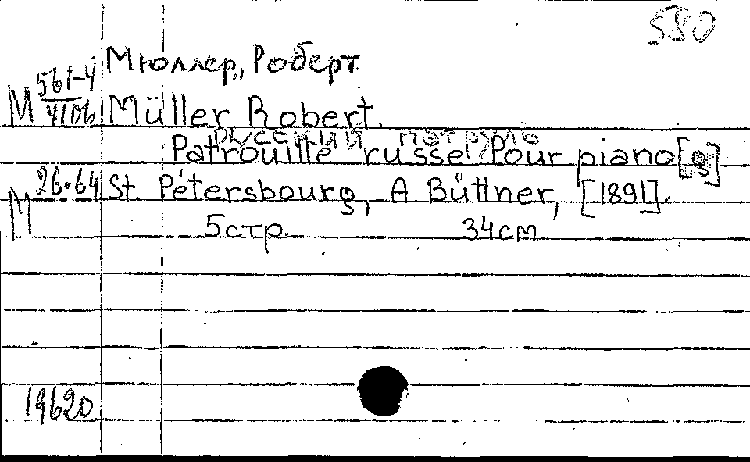 580
Мюллер, Роберт.
М 561-4/4106
Müller Robert.
русский патруль
Patrouille russe. Pour piano
26.64
St Pétersbourg, A Büttner, [1891].
М
5стр. 34cm
19620